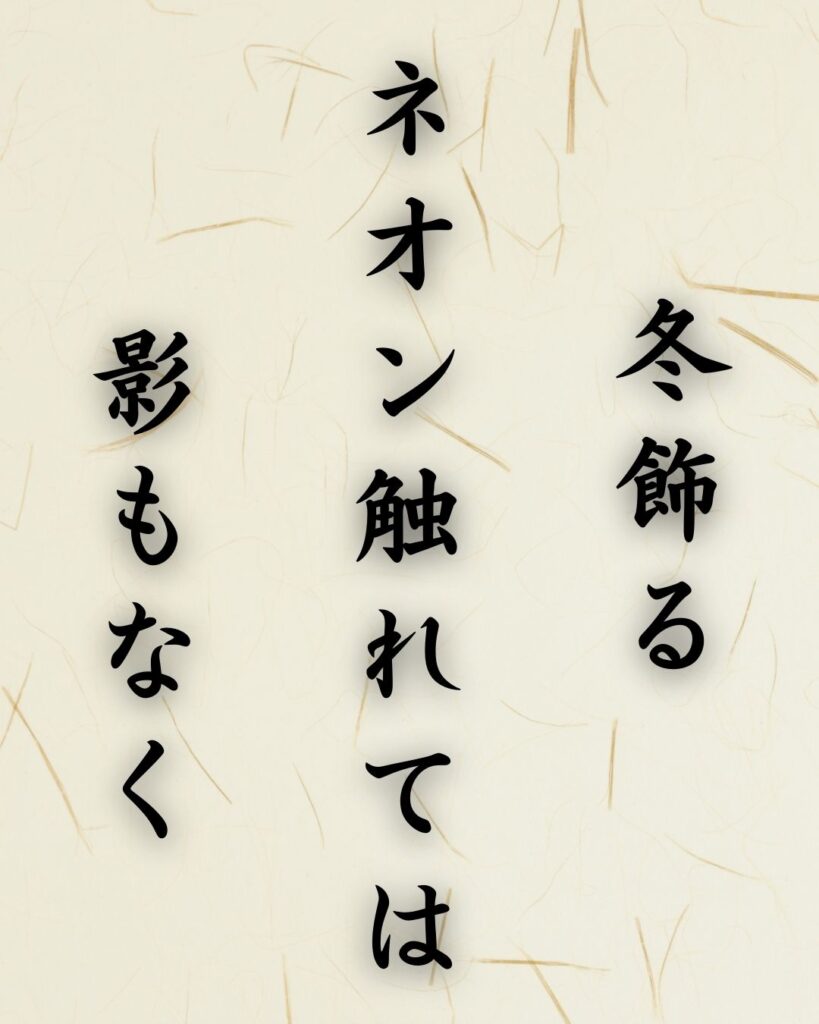 冬飾る
ネオン触れては
影もなく